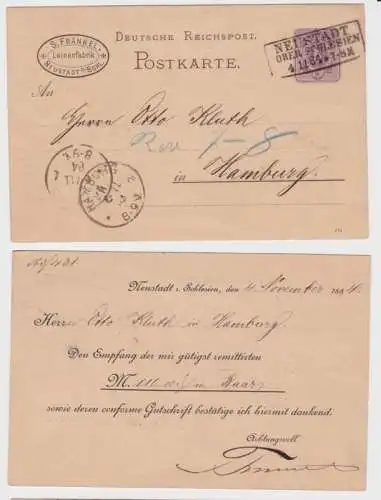 S. FRÄNKEL
Leinenfabrik
NEUSTADT O/SCHL.
DEUTSCHE REICHSPOST.
POSTKARTE.
NEUSTADT
OBER SCHLESIEN
4 11 84 * 7-8 N
An
Herrn Otto Kluth
7-8
in Hamburg.
Neustadt i. Schlesien, den 4. November 1884.
Herrn Otto Kluth in Hamburg
Den Empfang der mir gütigst remittirten
M. in Baar
sowie deren conforme Gutschrift bestätige ich hiermit dankend.
Achtungsvoll